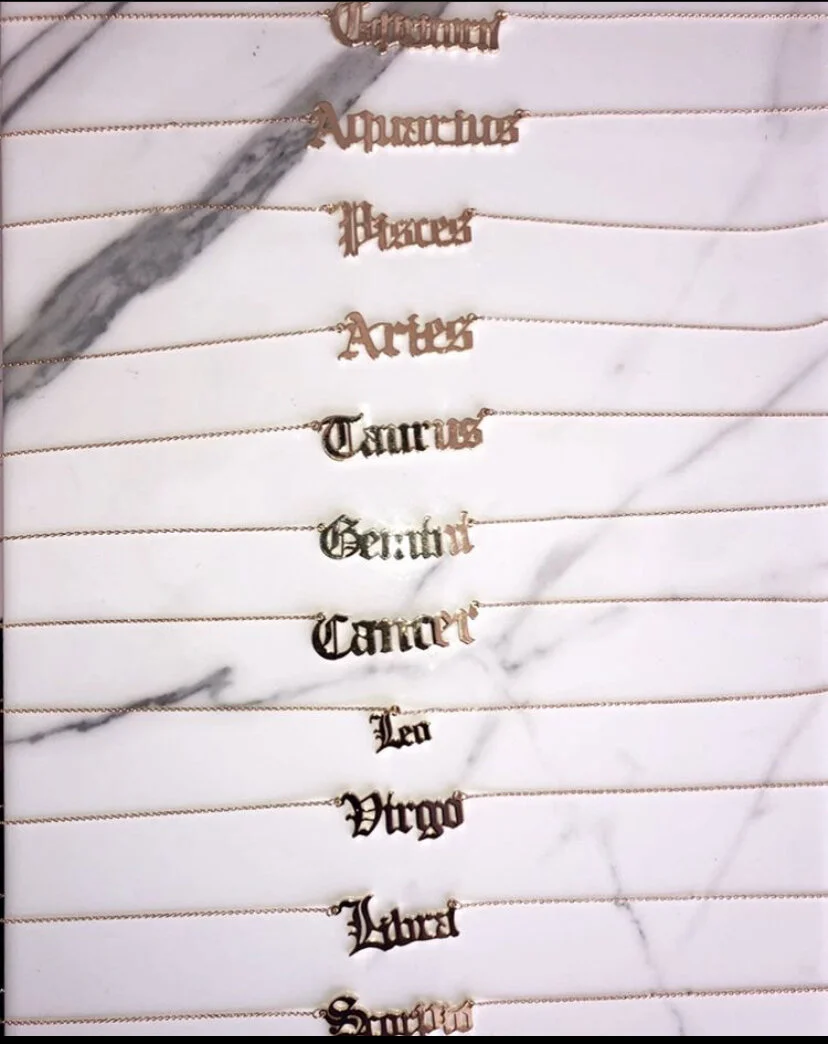 Capricorn
Aquarius
Pisces
Aries
Taurus
Gemini
Cancer
Leo
Virgo
Libra
Scorpio